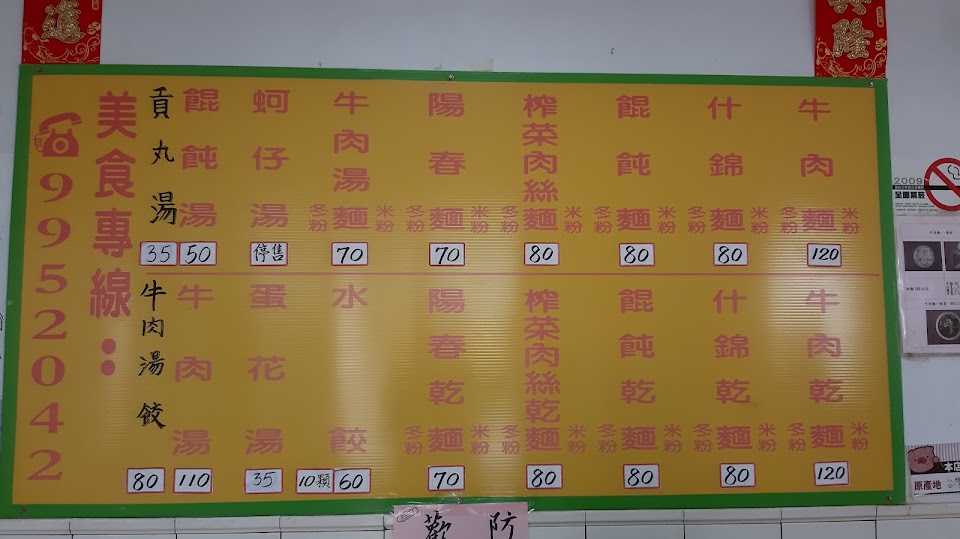 進
興隆
美食專線：
☎9952042
牛肉麵 米粉 冬粉 120
什錦麵 米粉 冬粉 80
餛飩麵 米粉 冬粉 80
榨菜肉絲麵 米粉 冬粉 80
陽春麵 米粉 冬粉 70
牛肉湯麵 米粉 冬粉 70
蚵仔湯 停售
餛飩湯 50
貢丸湯 35
牛肉乾麵 米粉 冬粉 120
什錦乾麵 米粉 冬粉 80
餛飩乾麵 米粉 冬粉 80
榨菜肉絲乾麵 米粉 冬粉 80
陽春乾麵 米粉 冬粉 70
水餃 10顆 60
蛋花湯 35
牛肉湯 110
牛肉湯餃 80
2009
全面禁菸
本店
原產地
歡 防